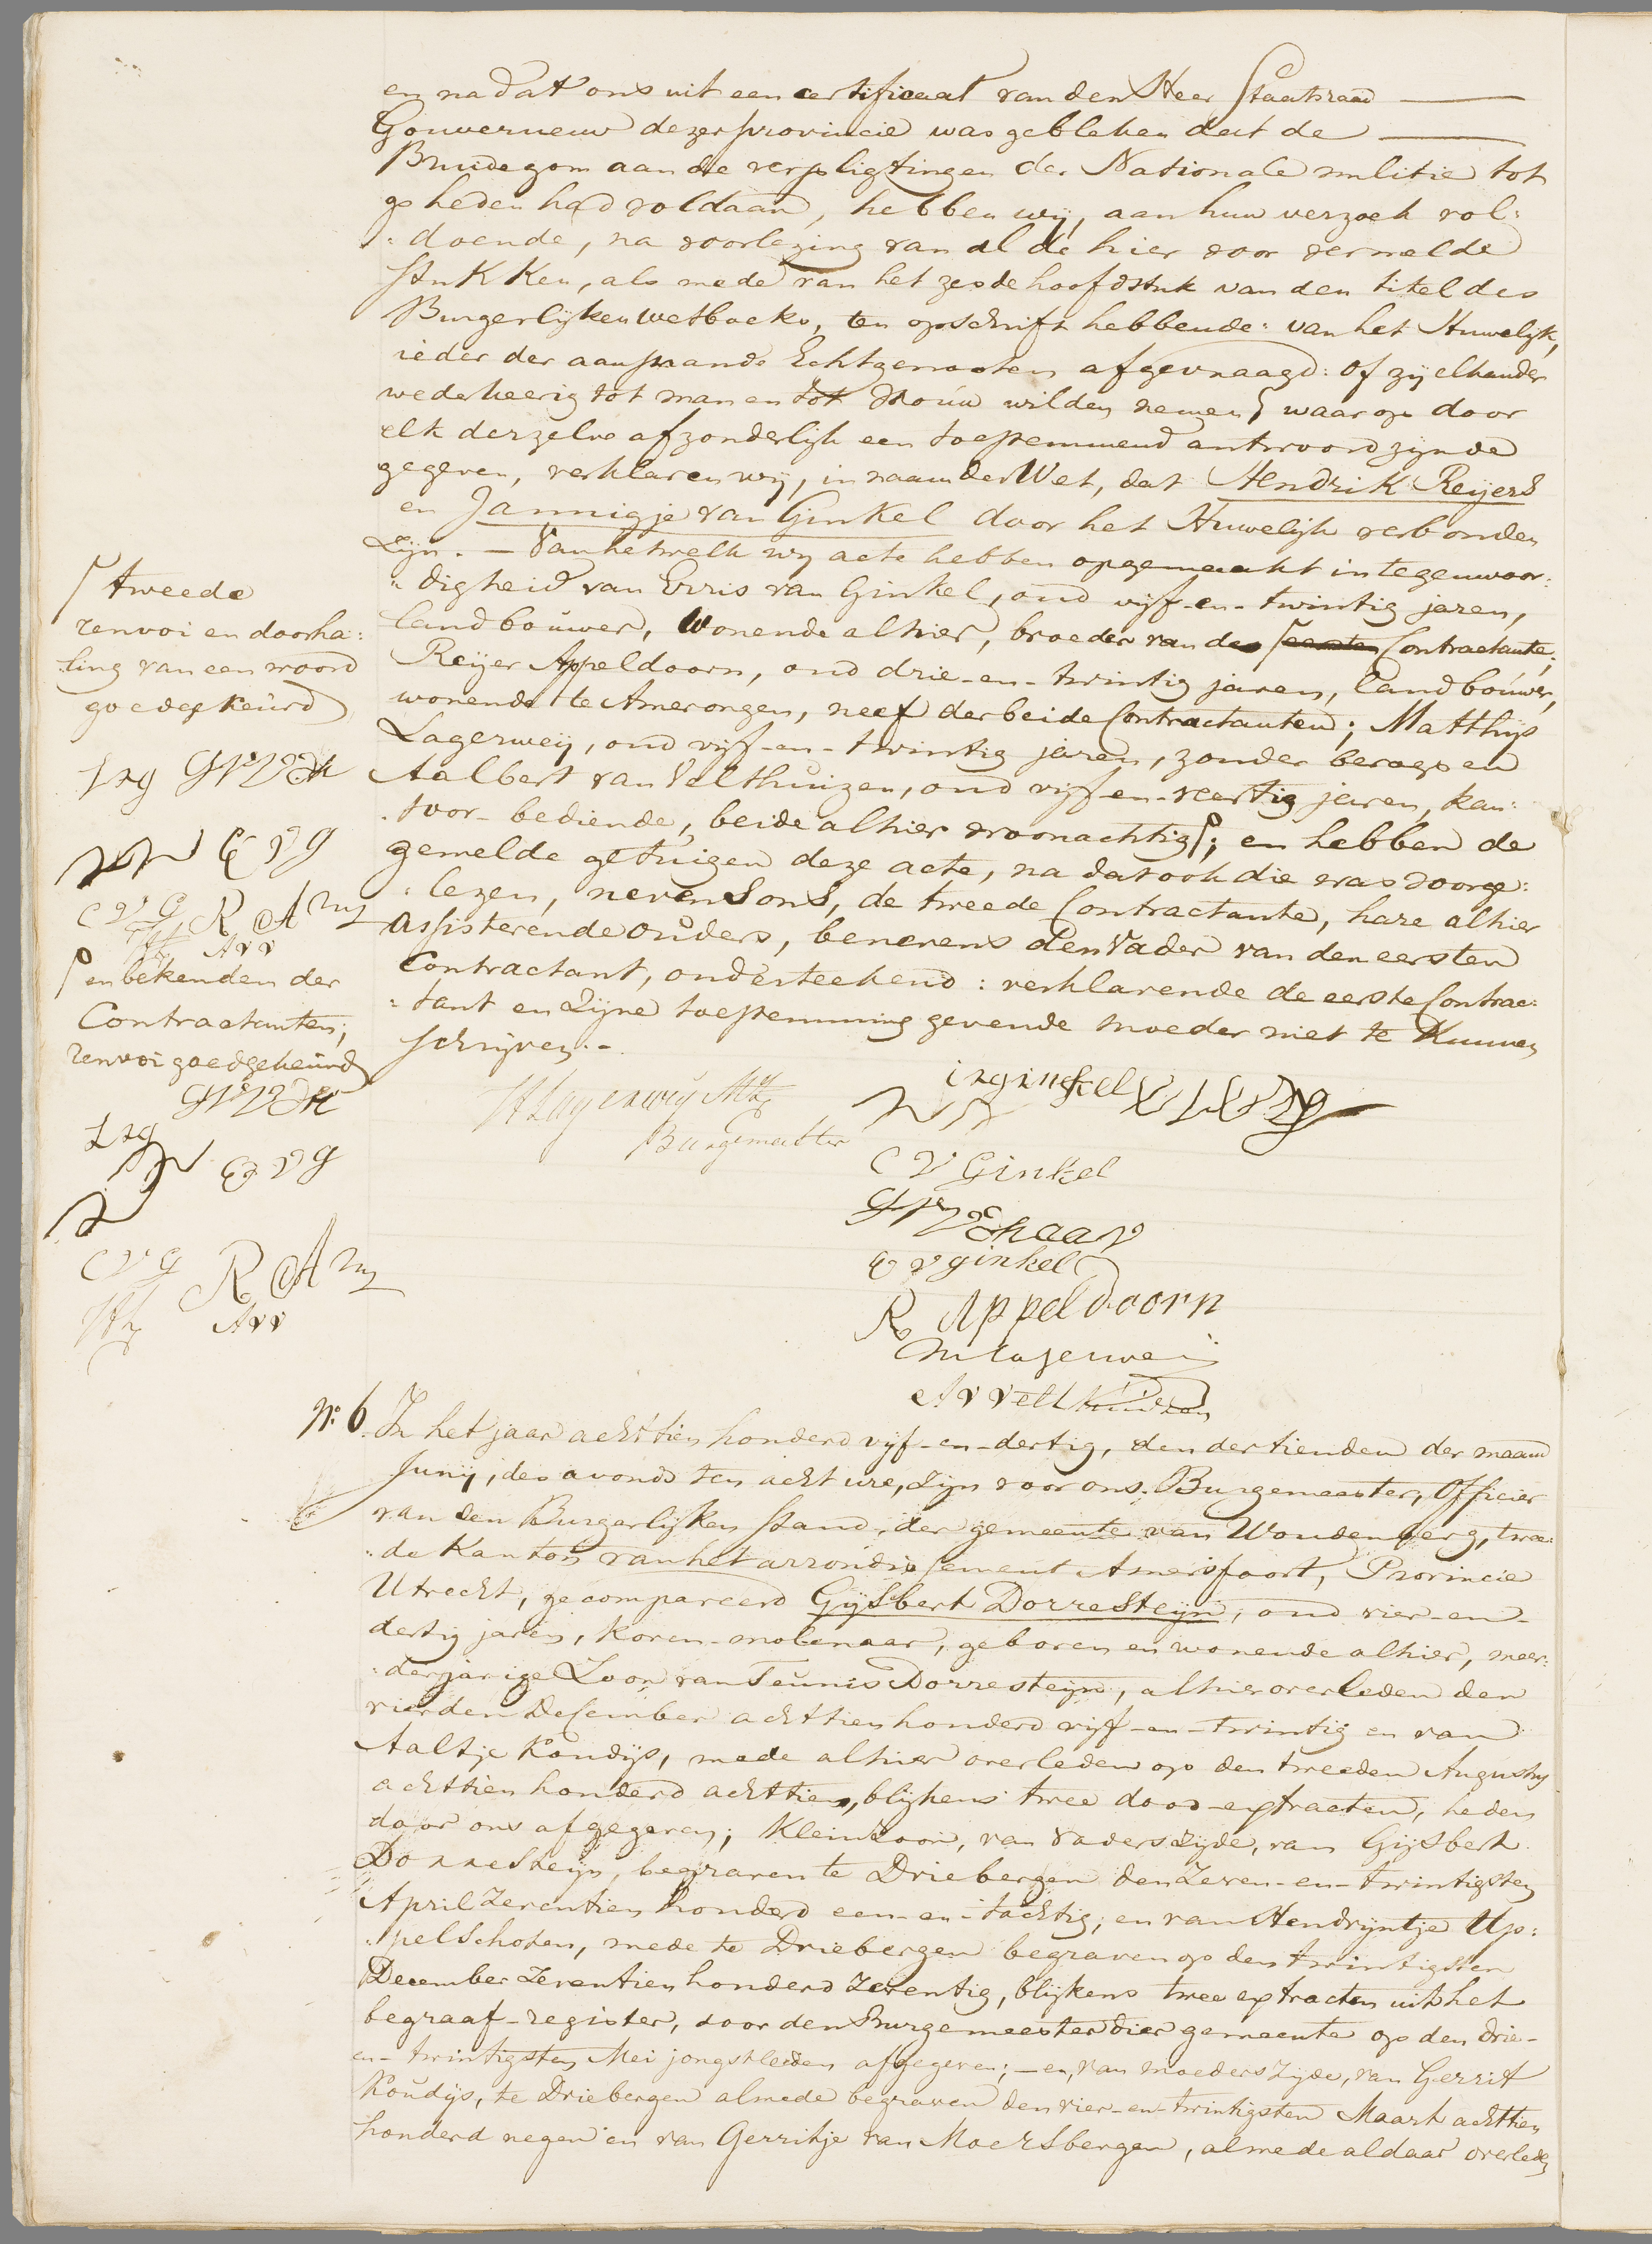 en nadat ons uit een certificaat van den Heer Staatsraad
Gouverneur dezer provincie was gebleken dat de
Bruidegom aan de verpligtingen der Nationale militie tot
op heden had voldaan, hebben wij, aan hun verzoek vol:
:doende, na voorlezing van al de hier voor vermelde
stukken, als mede van het zesde hoofdstuk van den titel des
Burgerlijken Wetboeks, ten opschrift hebbende: van het Huwelijk,
ieder der aanstaande Echtgenooten afgevraagd: of zij elkander
wederkeerig tot man en tot vrouw wilden nemen; waarop door
elk derzelve afzonderlijk een toestemmend antwoord zijnde
gegeven, verklaren wij, in naam der Wet, dat Hendrik Reijers
en Jannigje van Ginkel door het Huwelijk verbonden
zijn. — Van hetwelk wij acte hebben opgemaakt in tegenwoor:
:digheid van Evris van Ginkel, oud vijf-en-twintig jaren,
landbouwer, wonende alhier, broeder van de eersten Contractante;
Reijer Appeldoorn, oud drie-en-twintig jaren, landbouwer,
wonende te Amerongen, neef der beide Contractanten; Matthijs
Lagerweij, oud vijf-en-twintig jaren, zonder beroep en
Aalbert van Velthuizen, oud vijf-en-veertig jaren, kan:
:toor-bediende, beide alhier woonachtig; en hebben de
gemelde getuigen deze acte, na dat ook die was doorge:
:lezen, nevens ons, de tweede Contractante, hare alhier
assisterende ouders, benevens den Vader van den eersten
Contractant, onderteekend: verklarende de eerste Contrac:
:tant en zijne toestemming gevende moeder niet te kunnen
schrijven.-
tweede
renvoi en doorha:
:ling van een woord
goedgekeurd
E v g
C V G R A
A v v
en bekenden der
Contractanten;
renvoi goedgekeurd
E v g
C V G R A
A v v
H Lagerweij
Burgemeester
C V Ginkel
E v ginkel
R Appeldoorn
M Lagerweij
A v Velthuizen
No. 6. In het jaar achttien honderd vijf-en-dertig, den dertienden der maand
Junij, des avonds ten acht ure, zijn voor ons, Burgemeester, Officier
van den Burgerlijken Stand, der gemeente van Woudenberg, twee:
:de Kanton van het arrondissement Amersfoort, Provincie
Utrecht, gecompareerd Gijsbert Dorresteijn, oud vier-en-
dertig jaren, koren-molenaar, geboren en wonende alhier, meer:
:derjarige Zoon van Teunis Dorresteijn, alhier overleden den
vierden December achttien honderd vijf-en-twintig en van
Aaltje Koudijs, mede alhier overleden op den tweeden Augustus
achttien honderd achttien, blijkens twee dood-extracten, heden
door ons afgegeven; kleinzoon, van vaders zijde, van Gijsbert
Dorresteijn, begraven te Driebergen den zeven-en-twintigsten
April zeventien honderd een-en-tachtig, en van Hendrijntje Up:
:pelschoten, mede te Driebergen begraven op den twintigsten
December zeventien honderd zeventig, blijkens twee extracten uit het
begraaf-register, door den Burgemeester dier gemeente op den drie-
en-twintigsten Mei jongstleden afgegeven; — en, van moeders zijde, van Gerrit
Koudijs, te Driebergen almede begraven den vier-en-twintigsten Maart achttien
honderd negen en van Gerritje van Moersbergen, almede aldaar overleden